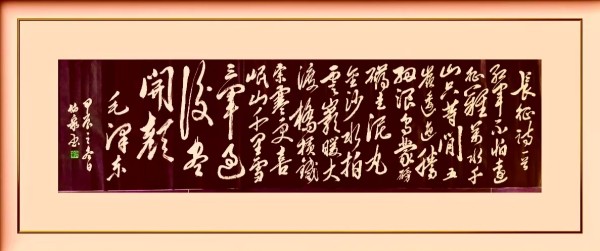 長征詩一首
紅軍不怕遠
征難萬水千
山只等閒五
嶺逶迤騰
細浪烏蒙磅
礴走泥丸
金沙水拍
雲崖暖大
渡橋橫鐵
索寒更喜
岷山千里雪
三軍過
後盡
開顏
毛澤東
甲辰之冬日
書